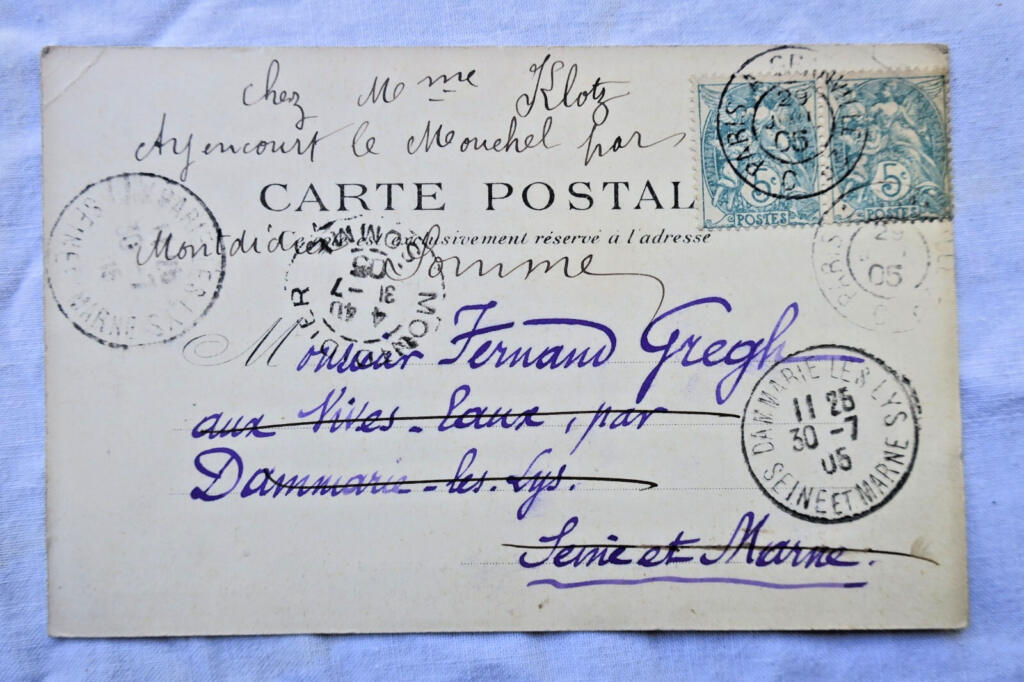 chez Mme Klotz
Ayencourt le Monchel par
CARTE POSTALE
exclusivement réservé à l'adresse
Montdidier Somme
Monsieur Fernand Gregh
aux Vives-Eaux, par
Dammarie-les-Lys.
Seine et Marne.
PARIS A GRANVILLE
29
05
5c
POSTES
5c
POSTES
PARIS
29
05
DAMMARIE LES LYS
11 25
30 -7
05
SEINE ET MARNE
MONTDIDIER
SOMME
4 40
31 -7
05